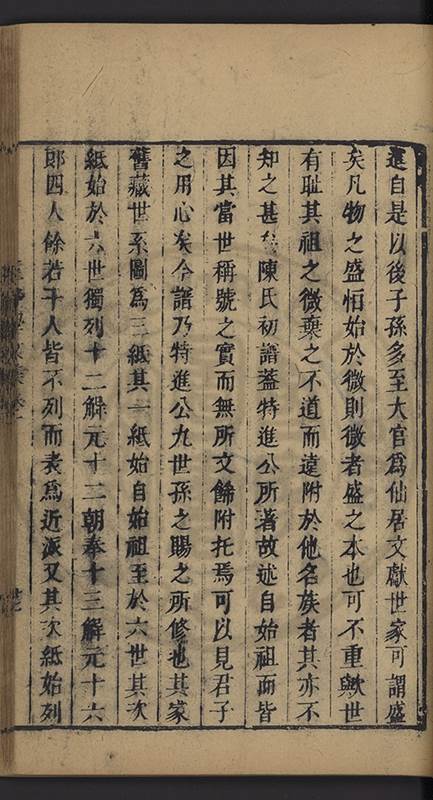 進自是以後子孫多至大官爲仙居文獻世家可謂盛
矣凡物之盛恒始於微則微者盛之本也可不重歟世
有耻其祖之微棄之不道而遠附於他名族者其亦不
知之甚矣陳氏初譜蓋特進公所著故述自始祖而皆
因其當世稱號之實而無所文餙附托焉可以見君子
之用心矣今譜乃特進公九世孫之賜之所修也其家
舊藏世系圖爲三紙其一紙始自始祖至於六世其次
紙始於六世獨列十二解元十二朝奉十三解元十六
郎四人餘若干人皆不列而表爲近派又其次紙始列